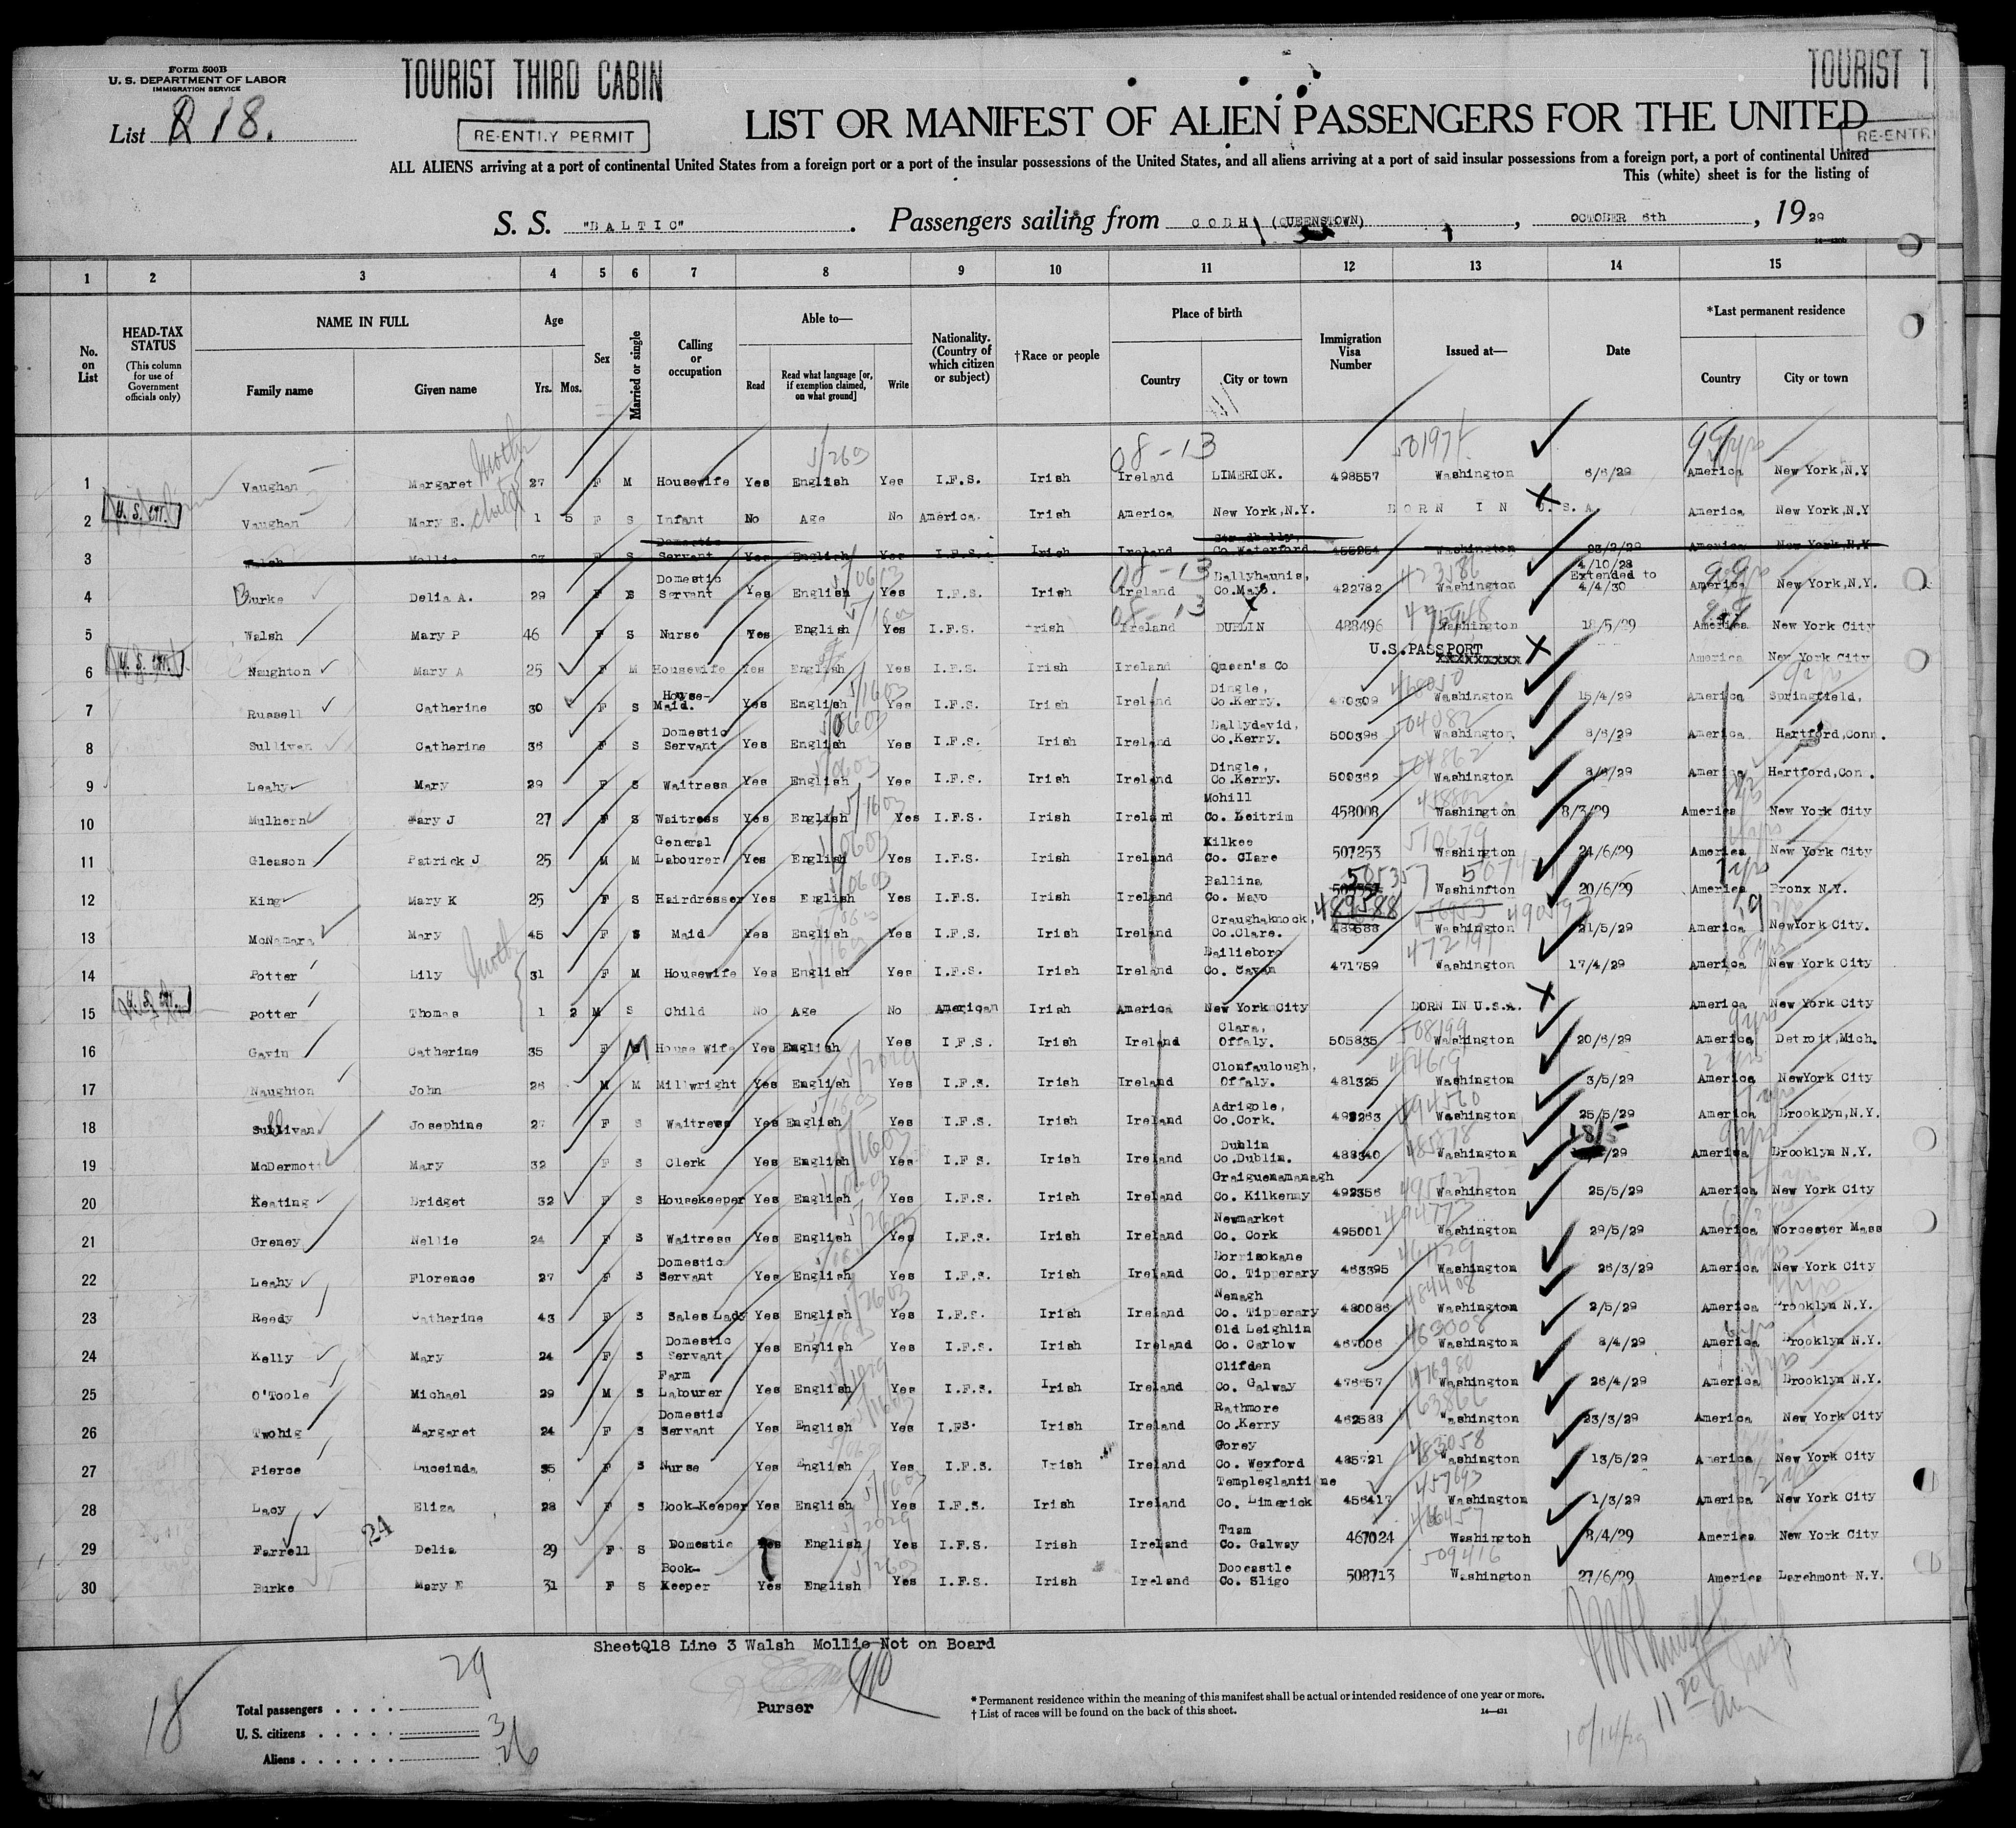 Form 500B
U. S. DEPARTMENT OF LABOR
IMMIGRATION SERVICE
TOURIST THIRD CABIN
TOURIST T
List 18.
RE-ENTRY PERMIT
LIST OR MANIFEST OF ALIEN PASSENGERS FOR THE UNITED
RE-ENTR
ALL ALIENS arriving at a port of continental United States from a foreign port or a port of the insular possessions of the United States, and all aliens arriving at a port of said insular possessions from a foreign port, a port of continental United
This (white) sheet is for the listing of
S. S. "BALTIC" . Passengers sailing from COBH (QUEENSTOWN) , OCTOBER 6th , 19 29
1 2 3 4 5 6 7 8 9 10 11 12 13 14 15
No. on List
HEAD-TAX STATUS (This column for use of Government officials only)
NAME IN FULL Family name Given name
Age Yrs. Mos.
Sex
Married or single
Calling or occupation
Able to— Read Read what language [or, if exemption claimed, on what ground] Write
Nationality. (Country of which citizen or subject)
†Race or people
Place of birth Country City or town
Immigration Visa Number
Issued at—
Date
*Last permanent residence Country City or town
08-13
1 Vaughan Margaret Mother 27 F M Housewife Yes English Yes I.F.S. Irish Ireland LIMERICK. 498557 Washington 6/6/29 America New York,N.Y
2 U. S. CIT. Vaughan Mary E. 1 5 F S Infant No Age No America. Irish America New York,N.Y. BORN IN U.S.A. America New York,N.Y
3 Walsh Mollie 23 F S Domestic Servant Yes English Yes I.F.S. Irish Ireland Stradbally, Co.Waterford 455254 Washington 23/2/29 America New York,N.Y
08-13
4 Burke Delia A. 29 F S Domestic Servant Yes English Yes I.F.S. Irish Ireland Ballyhaunis, Co.Mayo. 422782 Washington 4/10/28 Extended to 4/4/30 America New York,N.Y.
08-13
5 Walsh Mary P 46 F S Nurse Yes English Yes I.F.S. Irish Ireland DUBLIN 488496 Washington 18/5/29 America New York City
6 U. S. CIT. Naughton Mary A 25 F M Housewife Yes English Yes I.F.S. Irish Ireland Queen's Co U.S.PASSPORT xxxxxxxxx America New York City
7 Russell Catherine 30 F S House-Maid. Yes English Yes I.F.S. Irish Ireland Dingle, Co.Kerry. 470309 Washington 15/4/29 America Springfield,
8 Sullivan Catherine 36 F S Domestic Servant Yes English Yes I.F.S. Irish Ireland Ballydavid, Co.Kerry. 500396 Washington 8/6/29 America Hartford,Conn.
9 Leahy Mary 29 F S Waitress Yes English Yes I.F.S. Irish Ireland Dingle, Co.Kerry. 500362 Washington 8/6/29 America Hartford,Con.
10 Mulhern Mary J 27 F S Waitress Yes English Yes I.F.S. Irish Ireland Mohill Co. Leitrim 458008 Washington 8/3/29 America New York City
11 Gleason Patrick J 25 M M General Labourer Yes English Yes I.F.S. Irish Ireland Kilkee Co. Clare 507253 Washington 24/6/29 America New York City
12 King Mary K 25 F S Hairdresser Yes English Yes I.F.S. Irish Ireland Ballina Co. Mayo 505357 Washinfton 20/6/29 America Bronx N.Y.
13 McNamara Mary 45 F S Maid Yes English Yes I.F.S. Irish Ireland Craughaknock, Co.Clare. 489588 489588 Washington 21/5/29 America NewYork City.
14 Potter Lily 31 F M Housewife Yes English Yes I.F.S. Irish Ireland Bailieboro Co. Cavan 471759 Washington 17/4/29 America New York City
15 U. S. CIT. Potter Thomas 1 2 M S Child No Age No American Irish America New York City BORN IN U.S.A. America New York City
16 Gavin Catherine 35 F M House Wife Yes English Yes I.F.S. Irish Ireland Clara, Offaly. 505835 Washington 20/6/29 America Detroit,Mich.
17 Naughton John 26 M M Millwright Yes English Yes I.F.S. Irish Ireland Clonfaulough, Offaly. 481325 Washington 3/5/29 America NewYork City
18 Sullivan Josephine 27 F S Waitress Yes English Yes I.F.S. Irish Ireland Adrigole, Co.Cork. 492263 Washington 25/5/29 America Brooklyn,N.Y.
19 McDermott Mary 32 F S Clerk Yes English Yes I.F.S. Irish Ireland Dublin Co.Dublin. 488340 Washington 18/5 /29 America Brooklyn N.Y.
20 Keating Bridget 32 F S Housekeeper Yes English Yes I.F.S. Irish Ireland Graiguenamanagh Co. Kilkenny 492356 Washington 25/5/29 America New York City
21 Greney Nellie 24 F S Waitress Yes English Yes I.F.S. Irish Ireland Newmarket Co. Cork 495001 Washington 29/5/29 America Worcester Mass
22 Leahy Florence 27 F S Domestic Servant Yes English Yes I.F.S. Irish Ireland Borrisokane Co. Tipperary 463395 Washington 26/3/29 America New York City
23 Reedy Catherine 43 F S Sales Lady Yes English Yes I.F.S. Irish Ireland Nenagh Co. Tipperary 480086 Washington 2/5/29 America Brooklyn N.Y.
24 Kelly Mary 24 F S Domestic Servant Yes English Yes I.F.S. Irish Ireland Old Leighlin Co. Carlow 467006 Washington 8/4/29 America Brooklyn N.Y.
25 O'Toole Michael 29 M S Farm Labourer Yes English Yes I.F.S. Irish Ireland Clifden Co. Galway 476657 Washington 26/4/29 America Brooklyn N.Y.
26 Twohig Margaret 24 F S Domestic Servant Yes English Yes I.FS. Irish Ireland Rathmore Co.Kerry 462588 Washington 23/3/29 America New York City
27 Pierce Luceinda 35 F S Nurse Yes English Yes I.F.S. Irish Ireland Gorey Co. Wexford 485721 Washington 13/5/29 America New York City
28 Lacy Eliza 28 F S Book-Keeper Yes English Yes I.F.S. Irish Ireland Templeglantine Co. Limerick 456417 Washington 1/3/29 America New York City
29 Farrell 24 Delia 29 F S Domestic Yes English Yes I.F.S. Irish Ireland Tuam Co. Galway 467024 Washington 8/4/29 America New York City
30 Burke Mary E 31 F S Book-Keeper Yes English Yes I.F.S. Irish Ireland Doocastle Co. Sligo 508713 Washington 27/6/29 America Larchmont N.Y.
SheetQ18 Line 3 Walsh Mollie Not on Board
18
Total passengers . . . . 29
U. S. citizens . . . . . 3
Aliens . . . . . . 26
Purser
* Permanent residence within the meaning of this manifest shall be actual or intended residence of one year or more.
† List of races will be found on the back of this sheet.
14—431
10/14/29